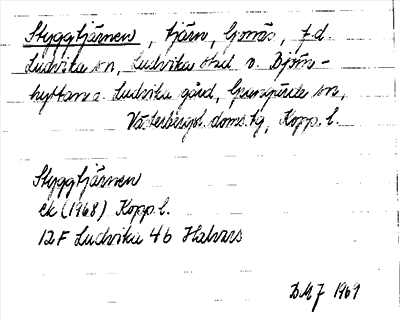 Styggtjärnen, tjärn, Gonäs, f.d.
Ludvika sn, Ludvika stad o. Björns-
hyttan o. Ludvika gård, Grangärde sn,
Västerbergsl. doms. tg, Kopp. l.
Styggtjärnen
ek (1968) Kopp l.
12F Ludvika 4b Halvars
DMJ 1969